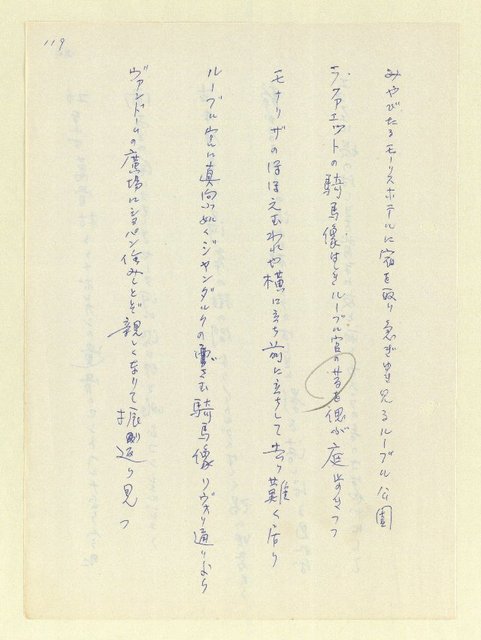 119
みやびたるモーリスホテルに宿を取り急ぎゆき見るルーブル公園
ラファエットの騎馬像はしきルーブル宮の昔を偲び庭歩きつつ
モナリザのほほえむわれや横に立ち前に立ちして去り難く居り
ルーブル宮に真向ふ如くジャンダルクの騎馬像リヴォリ通りに
ヴァンドームの廣場にショパン住みしとぞ親しくなりて振り返り見つ